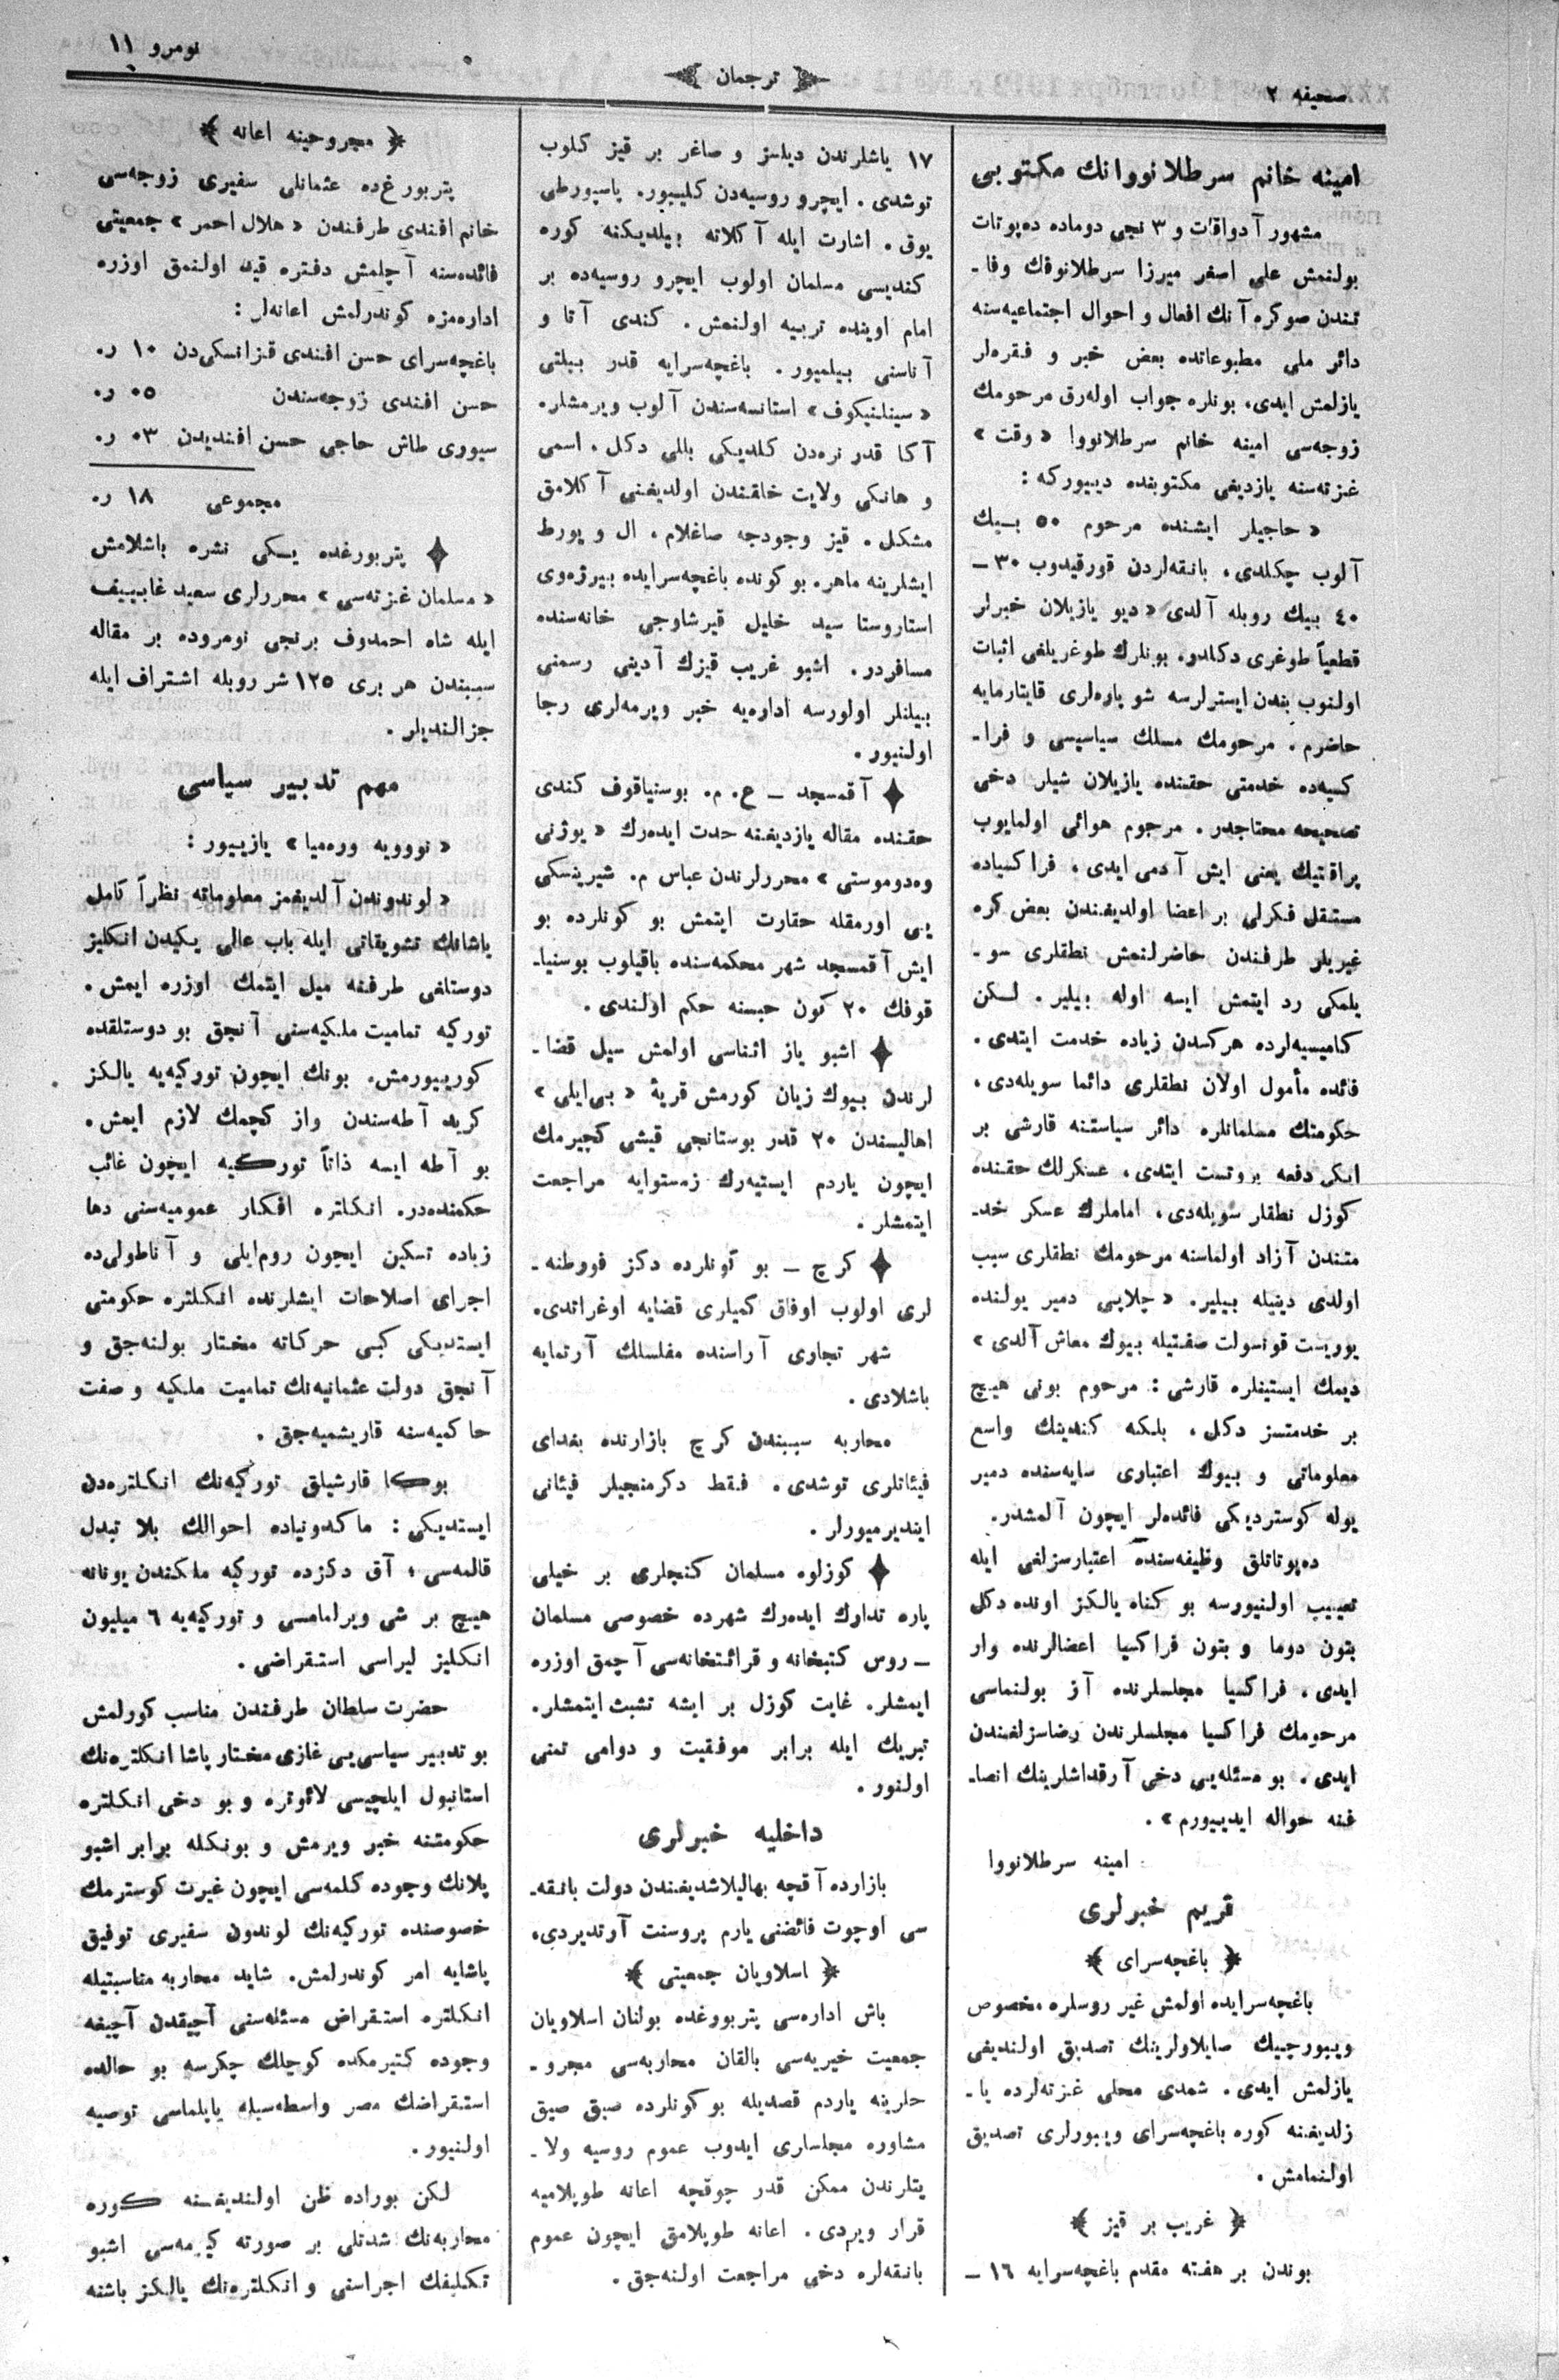 صحیفه ۲
﴿ ترجمان ﴾
نومرو ۱۱
امینه خانم سرطلانووانك مكتوبی
مشهور آدواقات و ۳ نجی دوماده ده‌پوتات
بولنمش علی اصغر میرزا سرطلانوفك وفا-
تندن صوكره آنك افعال و احوال اجتماعیه‌سنه
دائر ملی مطبوعاتده بعض خبر و فقره‌لر
یازلمش ایدی، بونلره جواب اوله‌رق مرحومك
زوجه‌سی امینه خانم سرطلانووا « وقت »
غزته‌سنه یازدیغی مكتوبنده دیییوركه :
« حاجیلر ایشنده مرحوم ۵۰ بیك
آلوب چكلدی، بانقه‌لردن قورقیدوب ۳۰ -
٤۰ بیك روبله آلدی « دیو یازیلان خبرلر
قطعیاً طوغری دكلدو. بونلرك طوغریلغی اثبات
اولنوب بندن ایسترلرسه شو پاره‌لری قایتارمایه
حاضرم. مرحومك مسلك سیاسیسی و فرا-
كسیه‌ده خدمتی حقنده یازیلان شیلر دخی
تصحیحه محتاجدر. مرحوم هوائی اولمایوب
پراقتیك یعنی ایش آدمی ایدی، فراكسیاده
مستقل فكرلی بر اعضا اولدیغندن بعض كره
غیریلر طرفندن حاضرلنمش نطقلری سو-
یلمكی رد ایتمش ایسه اوله بیلیر. لكن
كامیسیه‌لرده هركسدن زیاده خدمت ایتدی.
فائده مأمول اولان نطقلری دائما سویله‌دی،
حكومتك مسلمانلره دائر سیاستنه قارشی بر
ایكی دفعه بروتست ایتدی، عسكرلك حقنده
كوزل نطقلر سویله‌دی، اماملرك عسكر خد-
متندن آزاد اولماسنه مرحومك نطقلری سبب
اولدی دینیله بیلیر. « چلابی دمیر یولنده
یوریست قونسولت صفتیله بیوك معاش آلدی »
دیمك ایستیفلره قارشی : مرحوم بونی هیچ
بر خدمتسز دكل، بلكه كندینك واسع
معلوماتی و بیوك اعتباری سایه‌سنده دمیر
یوله كوستردیكی فائده‌لر ایچون آلمشدر.
ده‌پوتاتلق وظیفه‌سنده اعتبارسزلغی ایله
تعییب اولنیورسه بو كناه یالكز اونده دكل
بتون دوما و بتون فراكسیا اعضالرنده وار
ایدی، فراكسیا مجلسلرنده آز بولنماسی
مرحومك فراكسیا مجلسلرندن رضاسزلغندن
ایدی. بو مسئله‌یی دخی آرقداشلرینك انصا-
فنه حواله ایدییورم ».
امینه سرطلانووا
قریم خبرلری
﴿ باغچه‌سرای ﴾
باغچه‌سرایده اولمش غیر روسلره مخصوص
ویبورجیك صایلاولرینك تصدیق اولندیغی
یازلمش ایدی. شمدی محلی غزته‌لرده یا-
زلدیغنه كوره باغچه‌سرای ویبورلری تصدیق
اولنمامش.
﴿ غریب بر قیز ﴾
بوندن بر هفته مقدم باغچه‌سرایه ۱٦ -
۱۷ یاشلرندن دیلسز و صاغر بر قیز كلوب
توشدی. ایچرو روسیه‌دن كلییور. پاسپورطی
یوق. اشارت ایله آكلاته بیلدیكنه كوره
كندیسی مسلمان اولوب ایچرو روسیه‌ده بر
امام اوینده تربیه اولنمش. كندی آتا و
آناسنی بیلمیور. باغچه‌سرایه قدر بیلتی
« سینلنیكوف » استانسه‌سندن آلوب ویرمشلر.
آكا قدر نره‌دن كلدیكی بللی دكل. اسمی
و هانكی ولایت خلقندن اولدیغنی آكلامق
مشكل. قیز وجودجه صاغلام، ال و یورط
ایشلرینه ماهر. بو كونده باغچه‌سرایده بیرژه‌وی
استاروستا سید خلیل قیرشاوجی خانه‌سنده
مسافردر. اشبو غریب قیزك آدینی رسمنی
بیلنلر اولورسه اداره‌یه خبر ویرمه‌لری رجا
اولنیور.
✦ آقمسجد - ع. م. بوسنیاقوف كندی
حقنده مقاله یازدیغنه حدت ایده‌رك « یوژنی
وه‌دوموستی » محررلرندن عباس م. شیرینسكی
یی اورمقله حقارت ایتمش بو كونلرده بو
ایش آقمسجد شهر محكمه‌سنده باقیلوب بوسنیا-
قوفك ۲۰ كون حبسنه حكم اولندی.
✦ اشبو یاز اثناسی اولمش سیل قضا-
لرندن بیوك زیان كورمش قریهٔ « بی‌ایلی »
اهالیسندن ۲۰ قدر بوستانجی قیشی كچیرمك
ایچون یاردم ایستیه‌رك زمستوایه مراجعت
ایتمشلر.
✦ كرچ - بو كونلرده دكز فورطنه-
لری اولوب اوفاق كمیلری قضایه اوغراتدی.
شهر تجاری آراسنده مفلسلك آرتمایه
باشلادی.
محاربه سببندن كرچ بازارنده بغدای
فیئاتلری توشدی، فقط دكرمنجیلر فیئاتی
ایندیرمیورلر.
✦ كوزلوه مسلمان كنجلری بر خیلی
پاره تدارك ایده‌رك شهرده خصوصی مسلمان
- روس كتبخانه و قرائتخانه‌سی آچمق اوزره
ایمشلر. غایت كوزل بر ایشه تشبث ایتمشلر.
تبریك ایله برابر موفقیت و دوامی تمنی
اولنور.
داخلیه خبرلری
بازارده آقچه بهالیلاشدیغندن دولت بانقه-
سی اوچوت فائضنی یارم پروسنت آرتدیردی.
﴿ اسلاویان جمعیتی ﴾
باش اداره‌سی پتربورغده بولنان اسلاویان
جمعیت خیریه‌سی بالقان محاربه‌سی مجرو-
حلرینه یاردم قصدیله بو كونلرده صیق صیق
مشاوره مجلسلری ایدوب عموم روسیه ولا-
یتلرندن ممكن قدر چوقچه اعانه طوپلامیه
قرار ویردی. اعانه طوپلامق ایچون عموم
بانقه‌لره دخی مراجعت اولنه‌جق.
﴿ مجروحینه اعانه ﴾
پتربورغ‌ده عثمانلی سفیری زوجه‌سی
خانم افندی طرفندن « هلال احمر » جمعیتی
فائده‌سنه آچلمش دفتره قید اولنمق اوزره
اداره‌مزه كوندرلمش اعانه‌لر :
باغچه‌سرای حسن افندی قزانسكی‌دن ۱۰ ر.
حسن افندی زوجه‌سندن ۰۵ ر.
سیوری طاش حاجی حسن افندیدن ۰۳ ر.
مجموعی ۱۸ ر.
✦ پتربورغده یكی نشره باشلامش
« مسلمان غزته‌سی » محررلری سعید غابییف
ایله شاه احمدوف برنجی نومروده بر مقاله
سببندن هر بری ۱۲۵ شر روبله اشتراف ایله
جزالندیلر.
مهم تدبیر سیاسی
« نوویه وره‌میا » یازییور :
« لوندوندن آلدیغمز معلوماته نظراً كامل
پاشانك تشویقاتی ایله باب عالی یكیدن انكلیز
دوستلغی طرفنه میل ایتمك اوزره ایمش.
توركیه تمامیت ملكیه‌سنی آنجق بو دوستلقده
كورییورمش. بونك ایچون توركیه‌یه یالكز
كرید آطه‌سندن واز كچمك لازم ایمش.
بو آطه ایسه ذاتاً توركیه ایچون غائب
حكمنده‌در. انكلتره افكار عمومیه‌سنی دها
زیاده تسكین ایچون روم‌ایلی و آناطولی‌ده
اجرای اصلاحات ایشلرنده انكلتره حكومتی
ایستدیكی كبی حركاته مختار بولنه‌جق و
آنجق دولت عثمانیه‌نك تمامیت ملكیه و صفت
حاكمیه‌سنه قاریشمیه‌جق.
بوكا قارشیلق توركیه‌نك انكلتره‌دن
ایستدیكی : ماكدونیاده احوالك بلا تبدل
قالمه‌سی، آق دكزده توركیه ملكندن یونانه
هیچ بر شی ویرلمامسی و توركیه‌یه ٦ میلیون
انكلیز لیراسی استقراضی.
حضرت سلطان طرفندن مناسب كورلمش
بو تدبیر سیاسی‌یی غازی مختار پاشا انكلتره‌نك
استانبول ایلچیسی لائوتره و بو دخی انكلتره
حكومتنه خبر ویرمش و بونكله برابر اشبو
پلانك وجوده كلمه‌سی ایچون غیرت كوسترمك
خصوصنده توركیه‌نك لوندون سفیری توفیق
پاشایه امر كوندرلمش. شاید محاربه مناسبتیله
انكلتره استقراض مسئله‌سنی آچیقدن آچیغه
وجوده كتیرمكده كوچلك چكرسه بو حالده
استقراضك مصر واسطه‌سیله یاپلماسی توصیه
اولنیور.
لكن بوراده ظن اولندیغنه كوره
محاربه‌نك شدتلی بر صورته كیرمه‌سی اشبو
تكلیفك اجراسنی و انكلتره‌نك یالكز باشنه